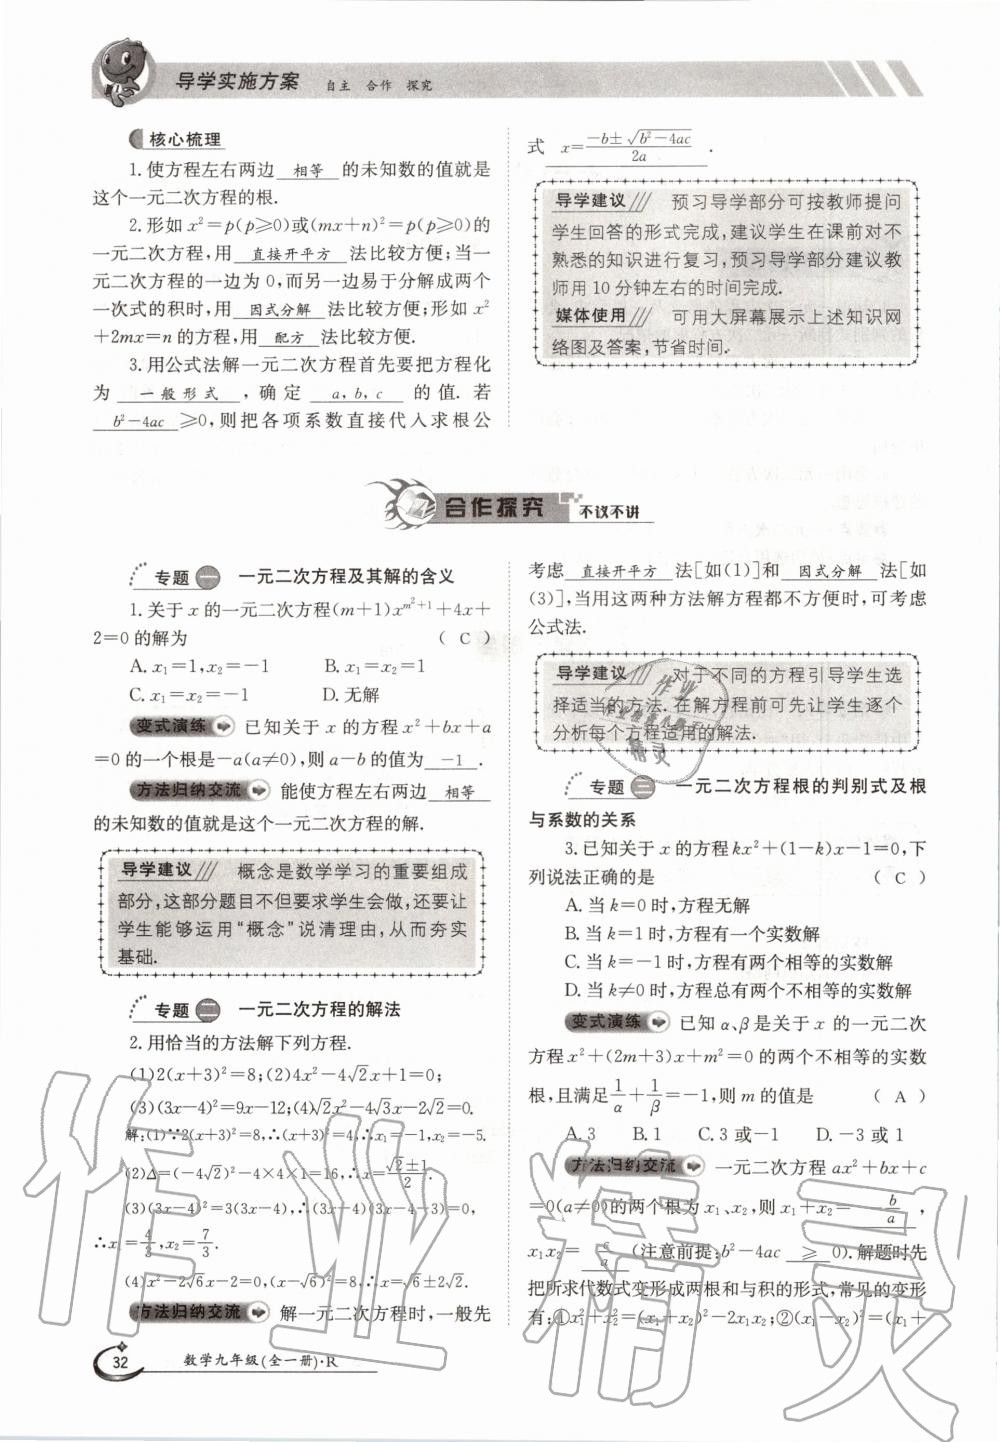 导学实施方案 自主 合作 探究
核心梳理
1.使方程左右两边 相等 的未知数的值就是
这个一元二次方程的根.
2.形如 x²=p(p≥0)或(mx+n)²=p(p≥0)的
一元二次方程,用 直接开平方 法比较方便;当一
元二次方程的一边为 0,而另一边易于分解成两个
一次式的积时,用 因式分解 法比较方便;形如 x²
+2mx=n 的方程,用 配方 法比较方便.
3.用公式法解一元二次方程首先要把方程化
为 一般形式 ,确定 a,b,c 的值.若
b²-4ac ≥0,则把各项系数直接代入求根公
式 x=(-b±√(b²-4ac))/2a .
导学建议 预习导学部分可按教师提问
学生回答的形式完成,建议学生在课前对不
熟悉的知识进行复习,预习导学部分建议教
师用 10 分钟左右的时间完成.
媒体使用 可用大屏幕展示上述知识网
络图及答案,节省时间.
合作探究 不议不讲
专题一 一元二次方程及其解的含义
1.关于 x 的一元二次方程(m+1)x^(m²+1)+4x+
2=0 的解为 ( C )
A.x₁=1,x₂=-1 B.x₁=x₂=1
C.x₁=x₂=-1 D.无解
变式演练 已知关于 x 的方程 x²+bx+a
=0 的一个根是-a(a≠0),则 a-b 的值为 -1 .
方法归纳交流 能使方程左右两边 相等
的未知数的值就是这个一元二次方程的解.
导学建议 概念是数学学习的重要组成
部分,这部分题目不但要求学生会做,还要让
学生能够运用“概念”说清理由,从而夯实
基础.
专题二 一元二次方程的解法
2.用恰当的方法解下列方程.
(1)2(x+3)²=8;(2)4x²-4√2x+1=0;
(3)(3x-4)²=9x-12;(4)√2x²-4√3x-2√2=0.
解:(1)∵2(x+3)²=8,∴(x+3)²=4,∴x₁=-1,x₂=-5.
(2)Δ=(-4√2)²-4×4×1=16,∴x=(√2±1)/2.
(3)(3x-4)²=3(3x-4),∴(3x-4)(3x-4-3)=0,
∴x₁=4/3,x₂=7/3.
(4)x²-2√6x-2=0,(x-√6)²=8,∴x=√6±2√2.
方法归纳交流 解一元二次方程时,一般先
考虑 直接开平方 法[如(1)]和 因式分解 法[如
(3)],当用这两种方法解方程都不方便时,可考虑
公式法.
导学建议 对于不同的方程引导学生选
择适当的方法.在解方程前可先让学生逐个
分析每个方程适用的解法.
专题三 一元二次方程根的判别式及根
与系数的关系
3.已知关于 x 的方程 kx²+(1-k)x-1=0,下
列说法正确的是 ( C )
A.当 k=0 时,方程无解
B.当 k=1 时,方程有一个实数解
C.当 k=-1 时,方程有两个相等的实数解
D.当 k≠0 时,方程总有两个不相等的实数解
变式演练 已知 α、β 是关于 x 的一元二次
方程 x²+(2m+3)x+m²=0 的两个不相等的实数
根,且满足1/α+1/β=-1,则 m 的值是 ( A )
A.3 B.1 C.3 或-1 D.-3 或 1
方法归纳交流 一元二次方程 ax²+bx+c
=0(a≠0)的两个根为 x₁、x₂,则 x₁+x₂= -b/a ,
x₁x₂= c/a (注意前提:b²-4ac ≥ 0).解题时先
把所求代数式变形成两根和与积的形式,常见的变形
有:①x₁²+x₂²=(x₁+x₂)²-2x₁x₂;②(x₁-x₂)²=(x₁+
32 数学九年级(全一册)·R
作业精灵